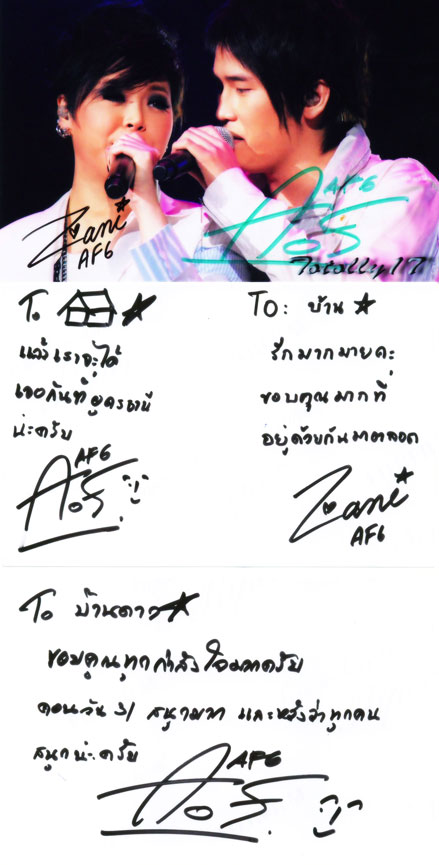 Zani
AF6
AF6
ตอริ
Totally17
To
แล้วเราจะได้
เจอกันที่อุดรธานี
น่ะครับ
AF6
ตอริ
TO: บ้าน
รักมากมายคะ
ขอบคุณมากที่
อยู่ด้วยกันมาตลอด
Zani
AF6
To บ้านดาว
ขอบคุณทุกกำลังใจมากครับ
คอนวัน 31 สนุกมาก และหวังว่าทุกคน
สนุกน่ะครับ
AF6
ตอริ